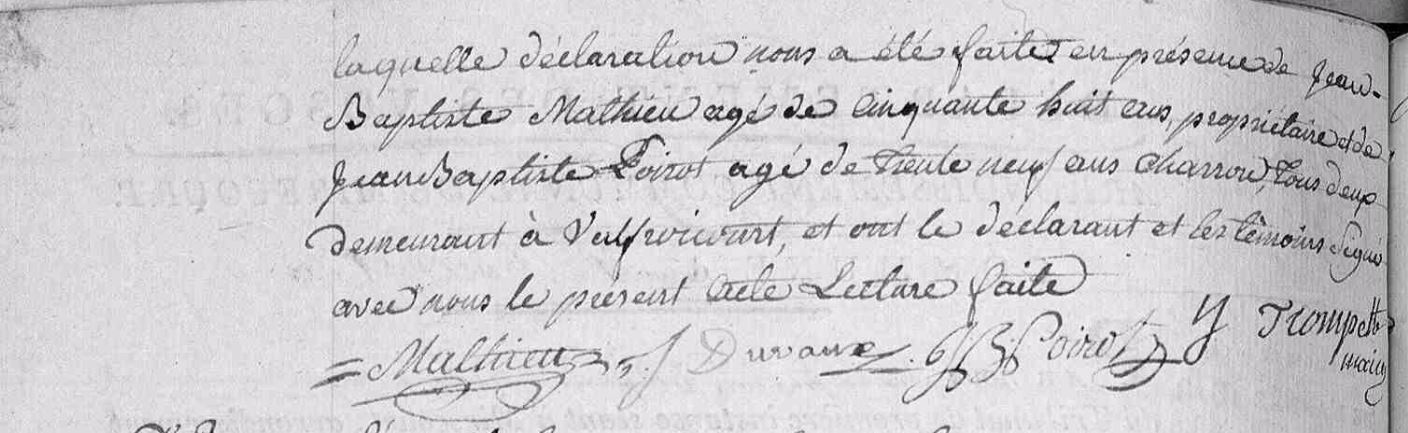 laquelle déclaration nous a été faite en présence de Jean-
Baptiste Mathieu agé de Cinquante huit ans, propriétaire et de
Jean Baptiste Poirot agé de trente neuf ans Charron, tous deux
demeurant à Valfroicourt, et ont le déclarant et les témoins Signé
avec nous le présent acte Lecture faite
Mathieu J Duvaux JB Poirot Y Trompette
maire